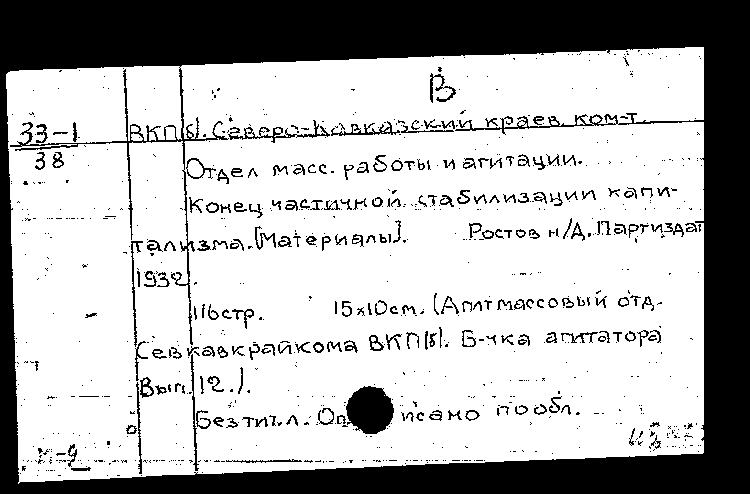 В
33-1 ВКП(б). Северо-Кавказский краев. ком-т.
38 Отдел масс. работы и агитации.
Конец частичной стабилизации капи-
тализма. [Материалы]. Ростов н/Д. Партиздат
1932.
116стр. 15x10см. (Агитмассовый отд.
Севкавкрайкома ВКП(б). Б-чка агитатора
Вып. 12.).
Без тит. л. Описано по обл.